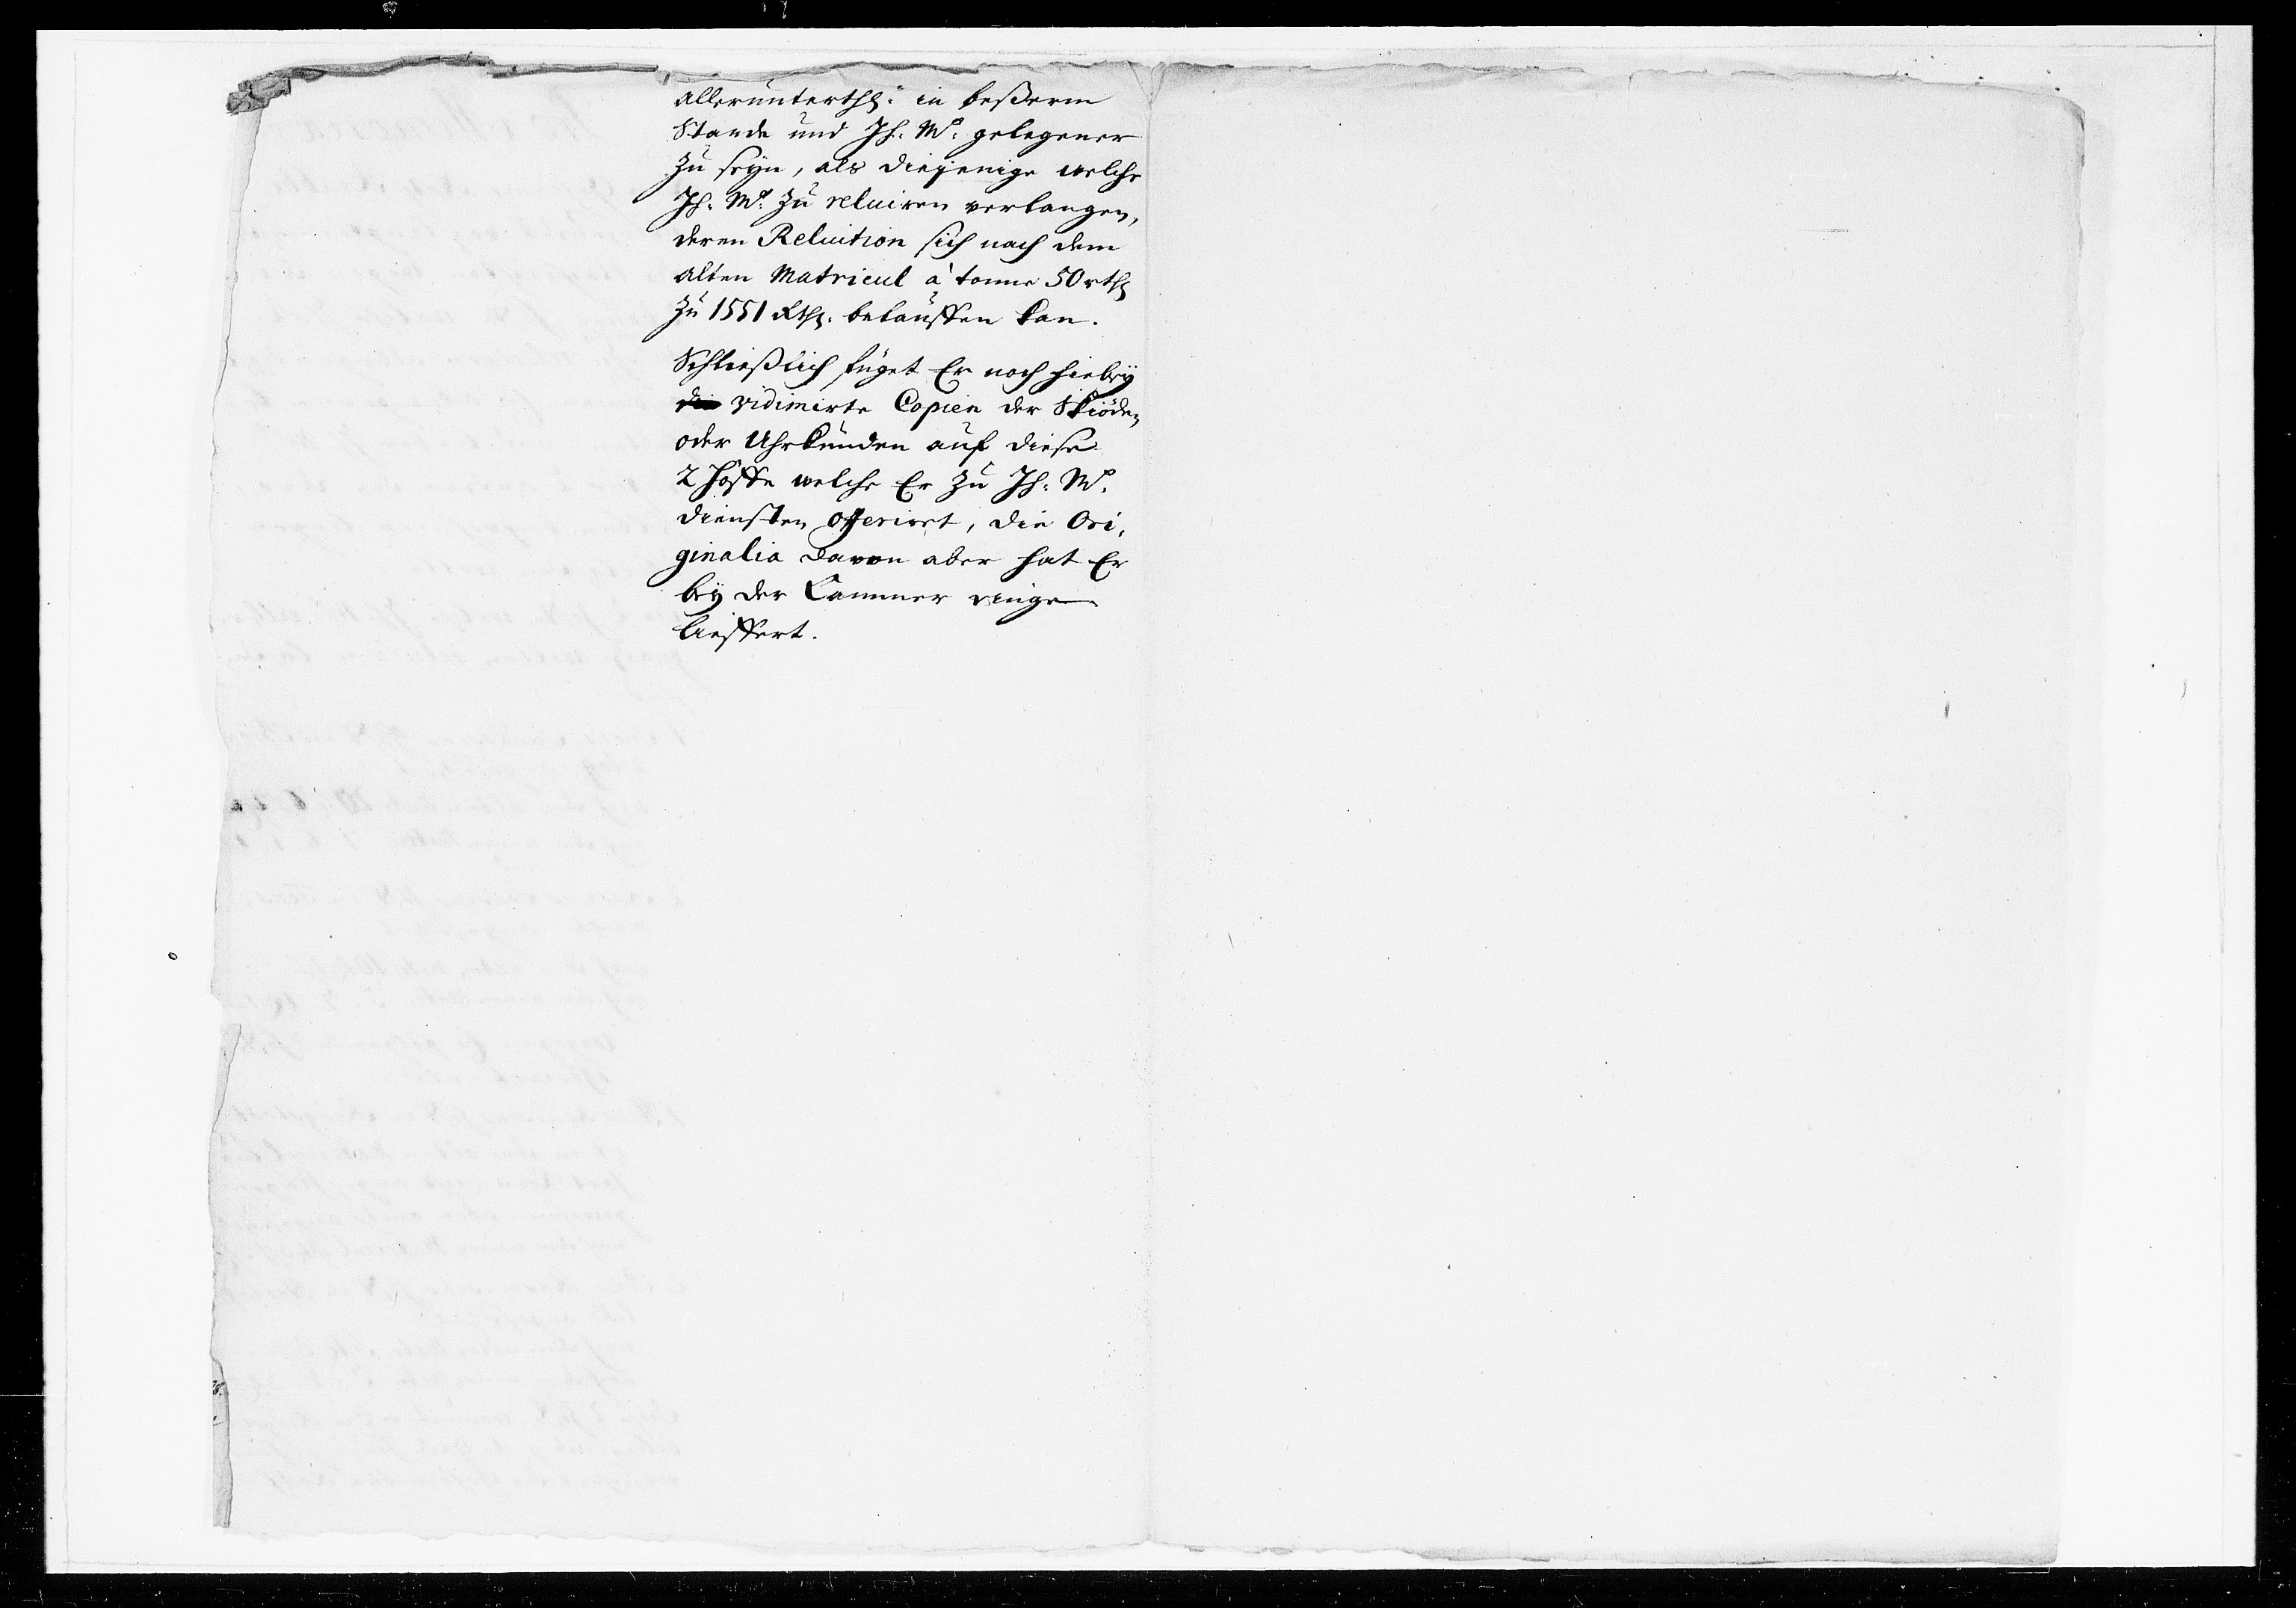 allerunterth: in beßerm
Stande und Ih: Mt: gelegener
zu seÿn, als diejenige welche
Ih: Mt: zu reluiren verlangen,
deren Reluition sich nach dem
alten Matricul à tonne 50 rth
zu 1551 Rth. belauffen kan.
Schließlich füget Er noch hiebeÿ
die vidimirte Copien der Skiöden
oder Uhrkunden auf diese
2 Höffe welche Er zu Ih: Mt:
diensten offerirt, die Ori,
ginalia davon aber hat Er
beÿ der Cammer einge
lieffert.